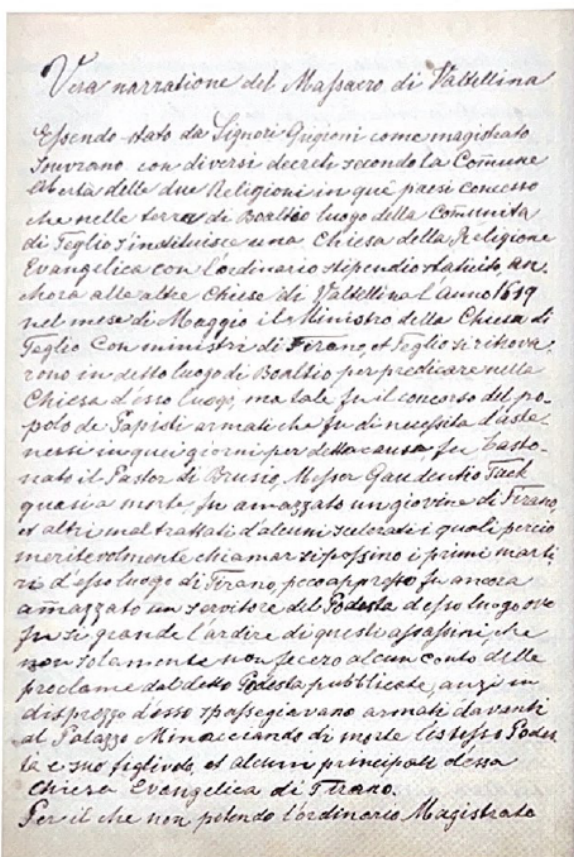 Vera narratione del Massacro di Valtellina
Essendo stato da Signori Grigioni come magistrato
souvrano con diversi decreti secondo la Comune
libertà delle due Religioni in que paesi concesso
che nelle terra di Boaltio luogo della Comunita
di Teglio s'instituisce una Chiesa della Religione
Evangelica con l'ordinario stipendio statuito, an-
chora alle altre Chiese di Valtellina l'Anno 1619
nel mese di Maggio il Ministro della Chiesa di
Teglio Con ministri di Tirano, et Teglio si ritrova-
rono in detto luogo di Boaltio per predicare nella
Chiesa d'esso luogo, ma tale fu il concorso del po-
polo de Papisti armati che fu di necessita d'aste-
nersi in quei giorni per detta causa fu basto-
nato il Pastor di Brusio, Messer Gaudentio Tack
quasi a morte, fu amazzato un giovine di Tirano,
et altri mal trattati d'alcuni scelorati i quali percio
meritevolmente chiamar si possino i primi marti-
ri d'esso luogo di Tirano, poco appresso fu ancora
amazzato un servitore del Podesta d'esso luogo ove
fu si grande l'ardire di questi assassini, che
non solamente non fecero alcun conto delle
proclame dal detto Podesta pubblicate, anzi in
disprezzo d'esso spassegiavano armati davanti
al Palazzo Minacciando di morte l'istesso Podes
ta e suo figlivolo, et alcuni principali d'essa
Chiesa Evangelica di Tirano.
Per il che non potendo l'ordinario Magistrato